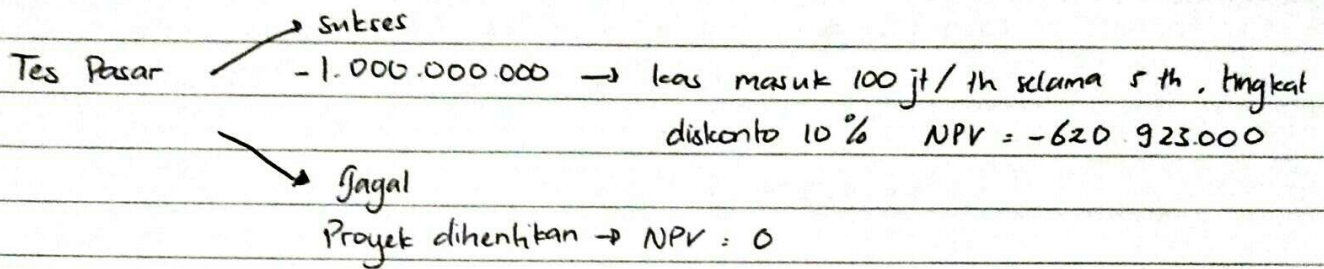 Sukses
Tes Pasar - 1.000.000.000 → kas masuk 100 jt / th selama 5 th, tingkat
diskonto 10 % NPV = -620.923.000
Gagal
Proyek dihentikan → NPV : 0